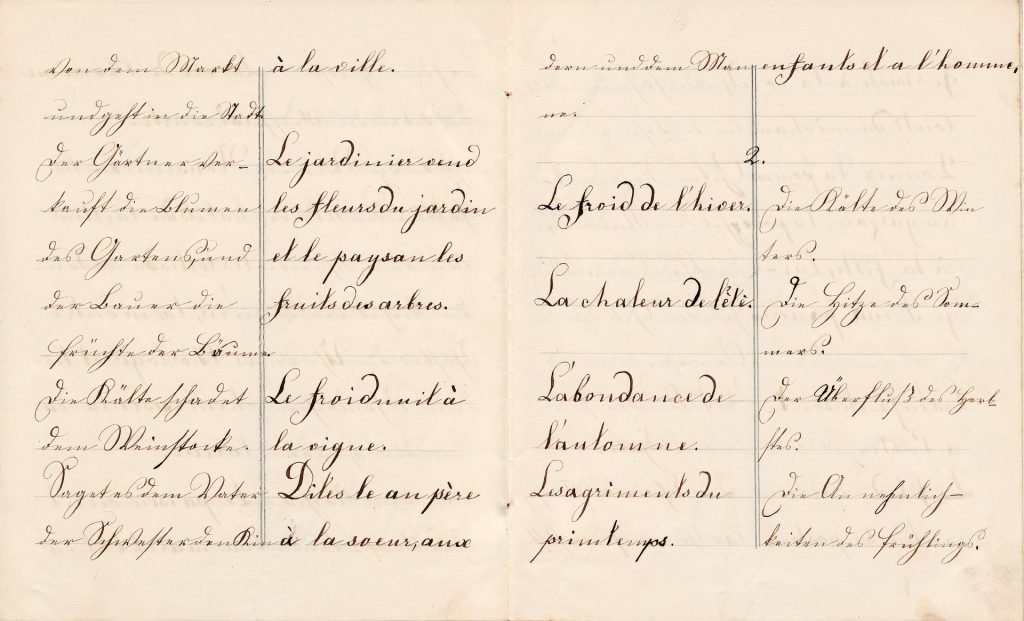 von dem Markt
und geht in die Stadt
Der Gärtner ver-
kauft die Blumen
des Gartens, und
der Bauer die
früchte der Bäume
Die Kälte schadet
dem Weinstocke.
Saget es dem Vater
der Schwester den Kin
à la ville.
Le jardinier vend
les fleurs du jardin
et le paysan les
fruits des arbres.
Le froid nuit à
la vigne.
Dites le au père
à la soeur, aux
dern und dem Man
ne.
enfants et a l'homme.
2.
Le froid de l'hiver.
La chaleur de l'été.
L'abondance de
l'automne.
Les agriments du
printemps.
Die Kälte des Win
ters.
Die Hitze des Som-
mers.
Der Überfluß des Herb-
stes.
Die Annehmlich-
keiten des Frühlings.